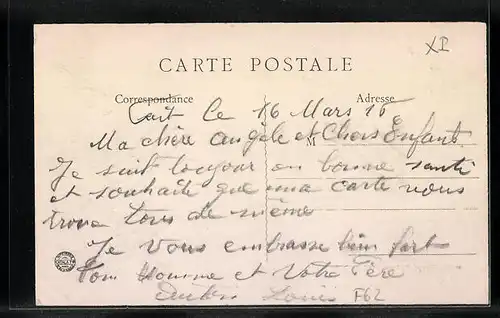 XI
CARTE POSTALE
Correspondance
Adresse
Ecrit le 16 Mars 15
M
Ma chère angèle et Chers Enfants
Je suit toujour en bonne santé
et souhaite que ma carte vous
trouve tous de même
Je vous embrasse bien fort
Ton Homme et Votre Père
Louis
F62